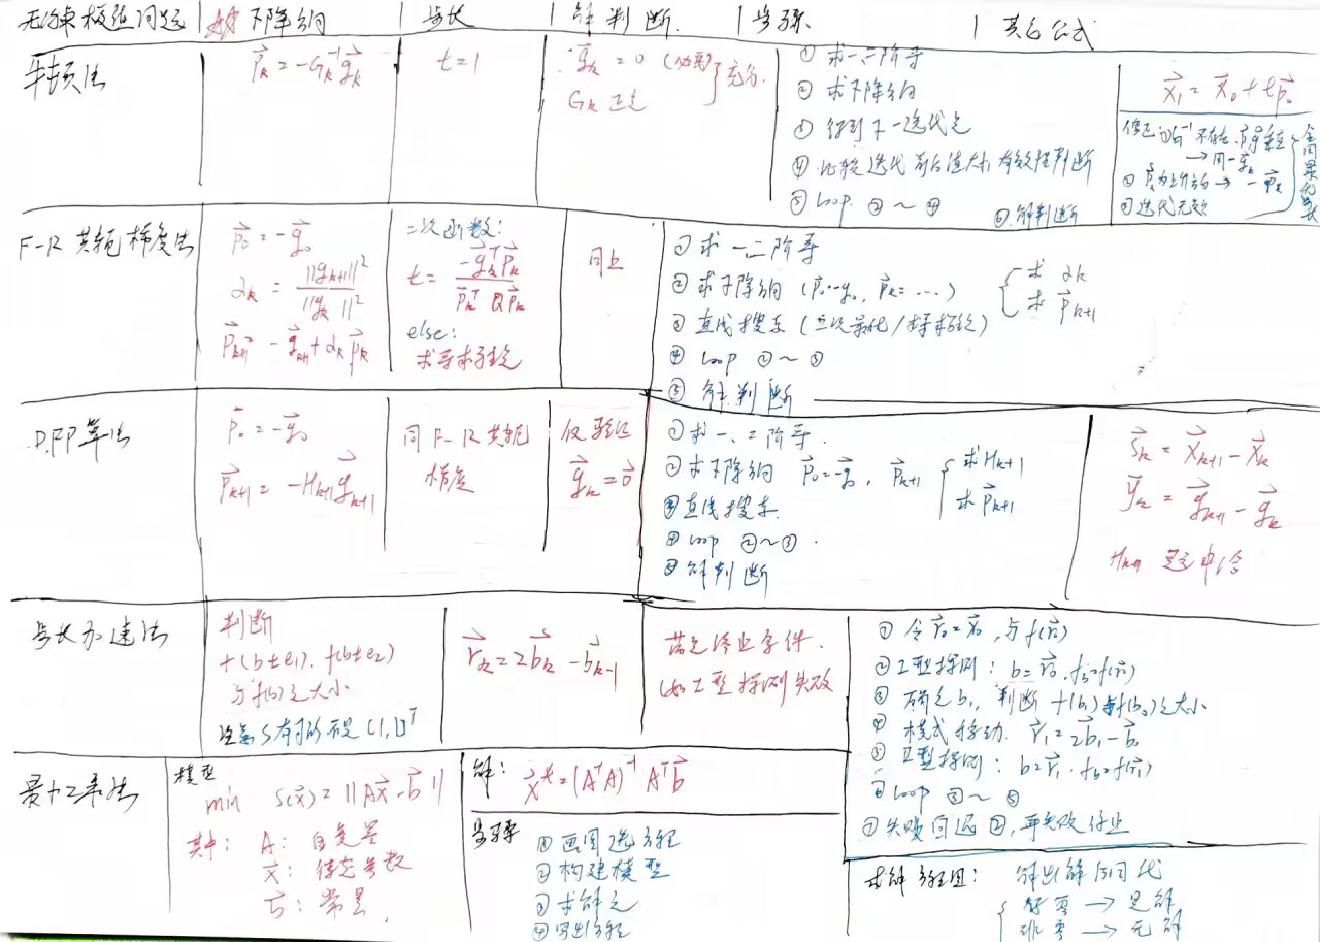 无约束极值问题 | 下降方向 | 步长 | 解判断 | 步骤 | 其它公式
牛顿法
p⃗k = -Gk⁻¹ g⃗k
t = 1
g⃗k = 0 (必要) } 充分.
Gk 正定
① 求一、二阶导
② 求下降方向
③ 得到下一迭代点
④ 比较迭代前后值大小, 有效性判断
⑤ loop ②~④ ⑥ 解判断
x⃗1 = x⃗0 + tp⃗0
→ 用 -g⃗k
③ 迭代无效
F-R 共轭梯度法
p⃗0 = -g⃗0
αk = ||gk+1||² / ||gk||²
p⃗k+1 = -g⃗k+1 + αk p⃗k
二次函数:
t = -g⃗kᵀp⃗k / p⃗kᵀ Q p⃗k
else:
同上
① 求一、二阶导
② 求下降方向 (p⃗0=-g⃗0, p⃗k = ...) { 求 αk
求 p⃗k+1
③ 直线搜索
④ loop ②~③
⑤ 解判断
DFP算法
p⃗0 = -g⃗0
p⃗k+1 = -Hk+1 g⃗k+1
同 F-R 共轭
梯度
仅验证
g⃗k = 0⃗
① 求一、二阶导.
② 求下降方向 p⃗0=-g⃗0, p⃗k+1 { 求Hk+1
求p⃗k+1
③ 直线搜索.
④ loop ②~③.
⑤ 解判断
s⃗k = x⃗k+1 - x⃗k
y⃗k = g⃗k+1 - g⃗k
Hk+1 题中给
步长加速法
判断
f(b±e1), f(b±e2)
与f(b)之大小
注意 S有时的不是 (1,1)ᵀ
r⃗k = 2b⃗k - b⃗k-1
满足终止条件.
(如 I 型探测失败
① 令 r⃗0=x⃗0, 与 f(r⃗0)
② I型探测: b=r⃗0, fb=f(r⃗0)
③ 确定b1, 判断 f(b1)与f(b0)之大小
④ 模式移动. r⃗1=2b1-b⃗0
⑤ II型探测: b=r⃗1, fb=f(r⃗1)
⑥ loop ③~⑤
⑦ 失败回退②, 再失败停止
最小二乘法
模型
min S(x⃗) = ||Ax⃗-b⃗||
其中: A: 自变量
x⃗: 待定参数
b⃗: 常量.
解: x⃗* = (AᵀA)⁻¹ Aᵀb⃗
步骤 ① 画图选方程
② 构建模型
③ 求解之
④ 写出方程
求解方程组: 解出解后回代
{ 得零 → 是解
非零 → 无解